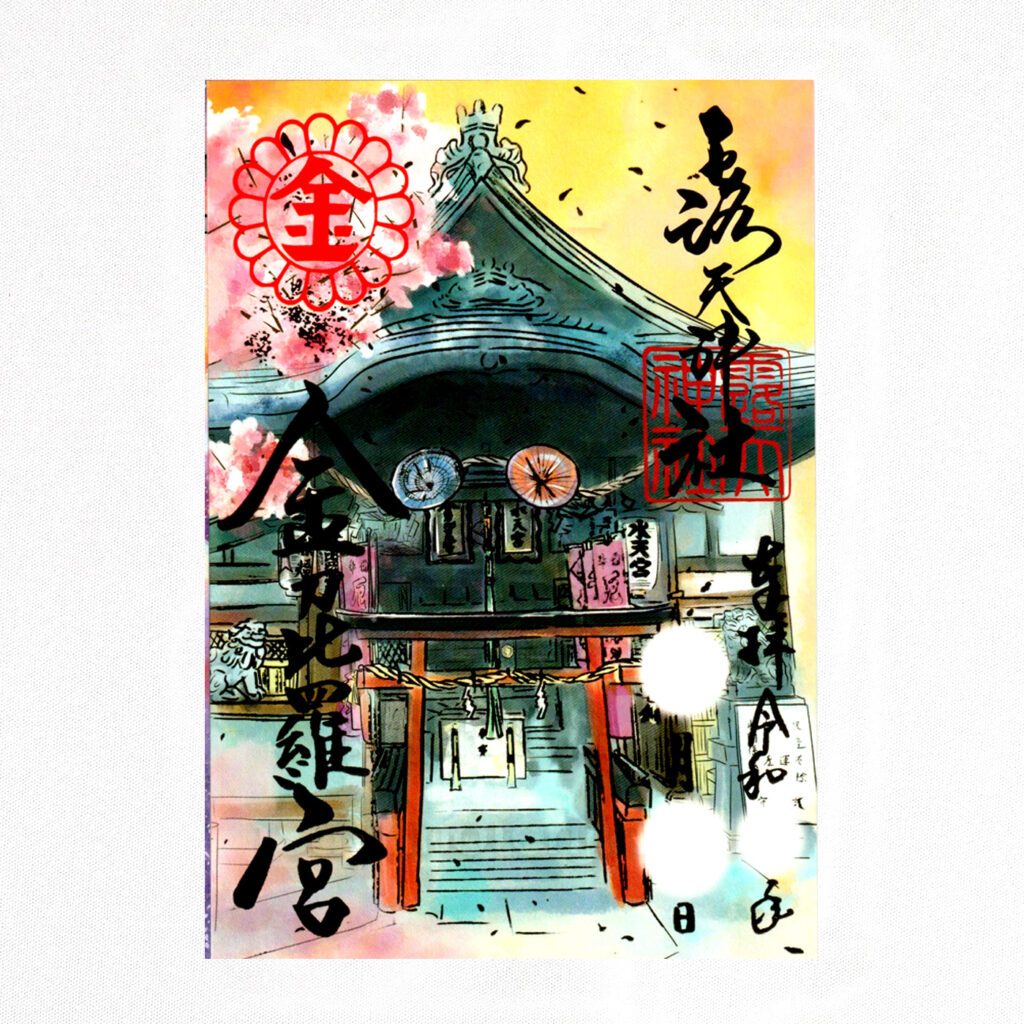 露天神社
奉拝 令和 年
月 日
金刀比羅宮
金
露天
神社
水天宮
水天宮